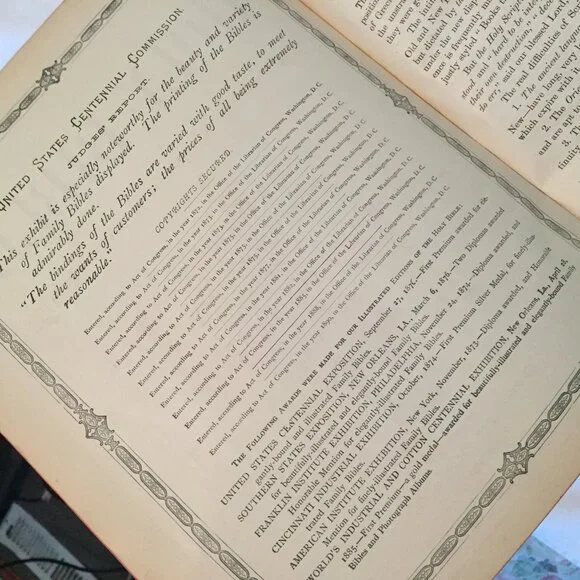 UNITED STATES CENTENNIAL COMMISSION.
JUDGES' REPORT.
This exhibit is especially noteworthy for the beauty and variety
of Family Bibles displayed. The printing of the Bibles is
admirably done.
"The bindings of the Bibles are varied with good taste, to meet
the wants of customers; the prices of all being extremely
reasonable."
COPYRIGHTS SECURED.
Entered, according to Act of Congress, in the year in the Office of the Librarian of Congress, Washington, D. C.
Entered, according to Act of Congress, in the year in the Office of the Librarian of Congress, Washington, D. C.
Entered, according to Act of Congress, in the year 1873, in the Office of the Librarian of Congress, Washington, D. C.
Entered, according to Act of Congress, in the year in the Office of the Librarian of Congress, Washington, D. C.
Entered, according to Act of Congress, in the year in the Office of the Librarian of Congress, Washington, D. C.
Entered, according to Act of Congress, in the year in the Office of the Librarian of Congress, Washington, D. C.
Entered, according to Act of Congress, in the year 1877, in the Office of the Librarian of Congress, Washington, D. C.
Entered, according to Act of Congress, in the year in the Office of the Librarian of Congress, Washington, D. C.
Entered, according to Act of Congress, in the year in the Office of the Librarian of Congress, Washington, D. C.
Entered, according to Act of Congress, in the year in the Office of the Librarian of Congress, Washington, D. C.
Entered, according to Act of Congress, in the year 1888, in the Office of the Librarian of Congress, Washington, D. C.
Entered, according to Act of Congress, in the year 1890, in the Office of the Librarian of Congress, Washington, D. C.
THE FOLLOWING AWARDS WERE MADE FOR OUR ILLUSTRATED EDITIONS OF THE HOLY BIBLE:
UNITED STATES CENTENNIAL EXPOSITION, September 27, 1876.—First Premium awarded for ele-
gantly-bound and illustrated Family Bibles.
SOUTHERN STATES EXPOSITION, NEW ORLEANS, LA., March 6, 1876.—Two Diplomas awarded
for beautifully-illustrated and elegantly-bound Family Bibles.
FRANKLIN INSTITUTE EXHIBITION, PHILADELPHIA, November 24, 1874—Diploma awarded, and
Honorable Mention for elegantly-illustrated Family Bibles.
CINCINNATI INDUSTRIAL EXHIBITION, October, 1874—First Premium Silver Medal, for finely-illus-
trated Family Bibles.
AMERICAN INSTITUTE EXHIBITION, New York, November, 1873—Diploma awarded, and Honorable
Mention for finely-illustrated Family Bibles.
WORLD'S INDUSTRIAL AND COTTON CENTENNIAL EXHIBITION, New Orleans, La., April 28,
1885.—First Premium—a gold medal—awarded for beautifully-illustrated and elegantly-bound Family
Bibles and Photograph Albums.
they were
The
Old and New T
but dictated by
under the new
ence is frequently mi
justly styled, Books
But the Holy Scrip
stood" and "hard to be
their own destruction,
to err," said our blessed Lord,
The real difficulties of
The ancient
New—have long, very
which expire with
and are apt
2. The Orie
3. T